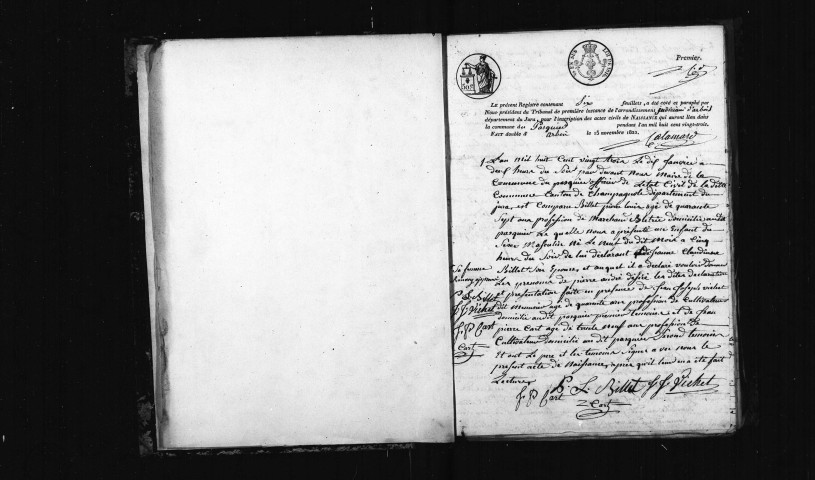 Premier.
Le présent Registre contenant Dix feuillets, a été coté et paraphé par
Nous président du Tribunal de première instance de l'arrondissement judiciaire d'arbois
département du Jura, pour l'inscription des actes civils de NAISSANCE qui auront lieu dans
la commune du Pasquier pendant l'an mil huit cent vingt-trois.
FAIT double à arbois le 15 novembre 1822.
1. L'an mil huit Cent vingt trois Le dix janvier a
deux heure du Soir par devant nous Maire de la
Commune du pasquier officier de L'etat Civil de la ditte
Commune Canton de Champagnole département du
jura, est Comparu Billet pierre louis agé de quarante
Sept ans profession de Marchand domicilié audit
pasquier Le quelle nous a présenté un Enfant du
Sexe Masculin né Le neuf du dit Mois a Cinq
heure du Soir de lui déclarant et de jeanne Claudine
Billet Son Epouse, et auquel il a déclaré vouloir donner
Les prenoms de pierre andré Les dites déclaration
et présentation faite en présence de jean joseph vichet
dit Meunier agé de quarante ans profession de Cultivateur
domicilié audit pasquier premier temoin et de jean
pierre Cart agé de trente neuf ans profession de
Cultivateur domicilié au dit pasquier Second temoin
Et ont Le pere et les temoins Signés avec nous le
présent acte de Naissance, après qu'il leur en a été fait
Lecture
P L Billet
J J Vichet
J P Cart
Cart
J P Cart P L Billet J J Vichet
Cart